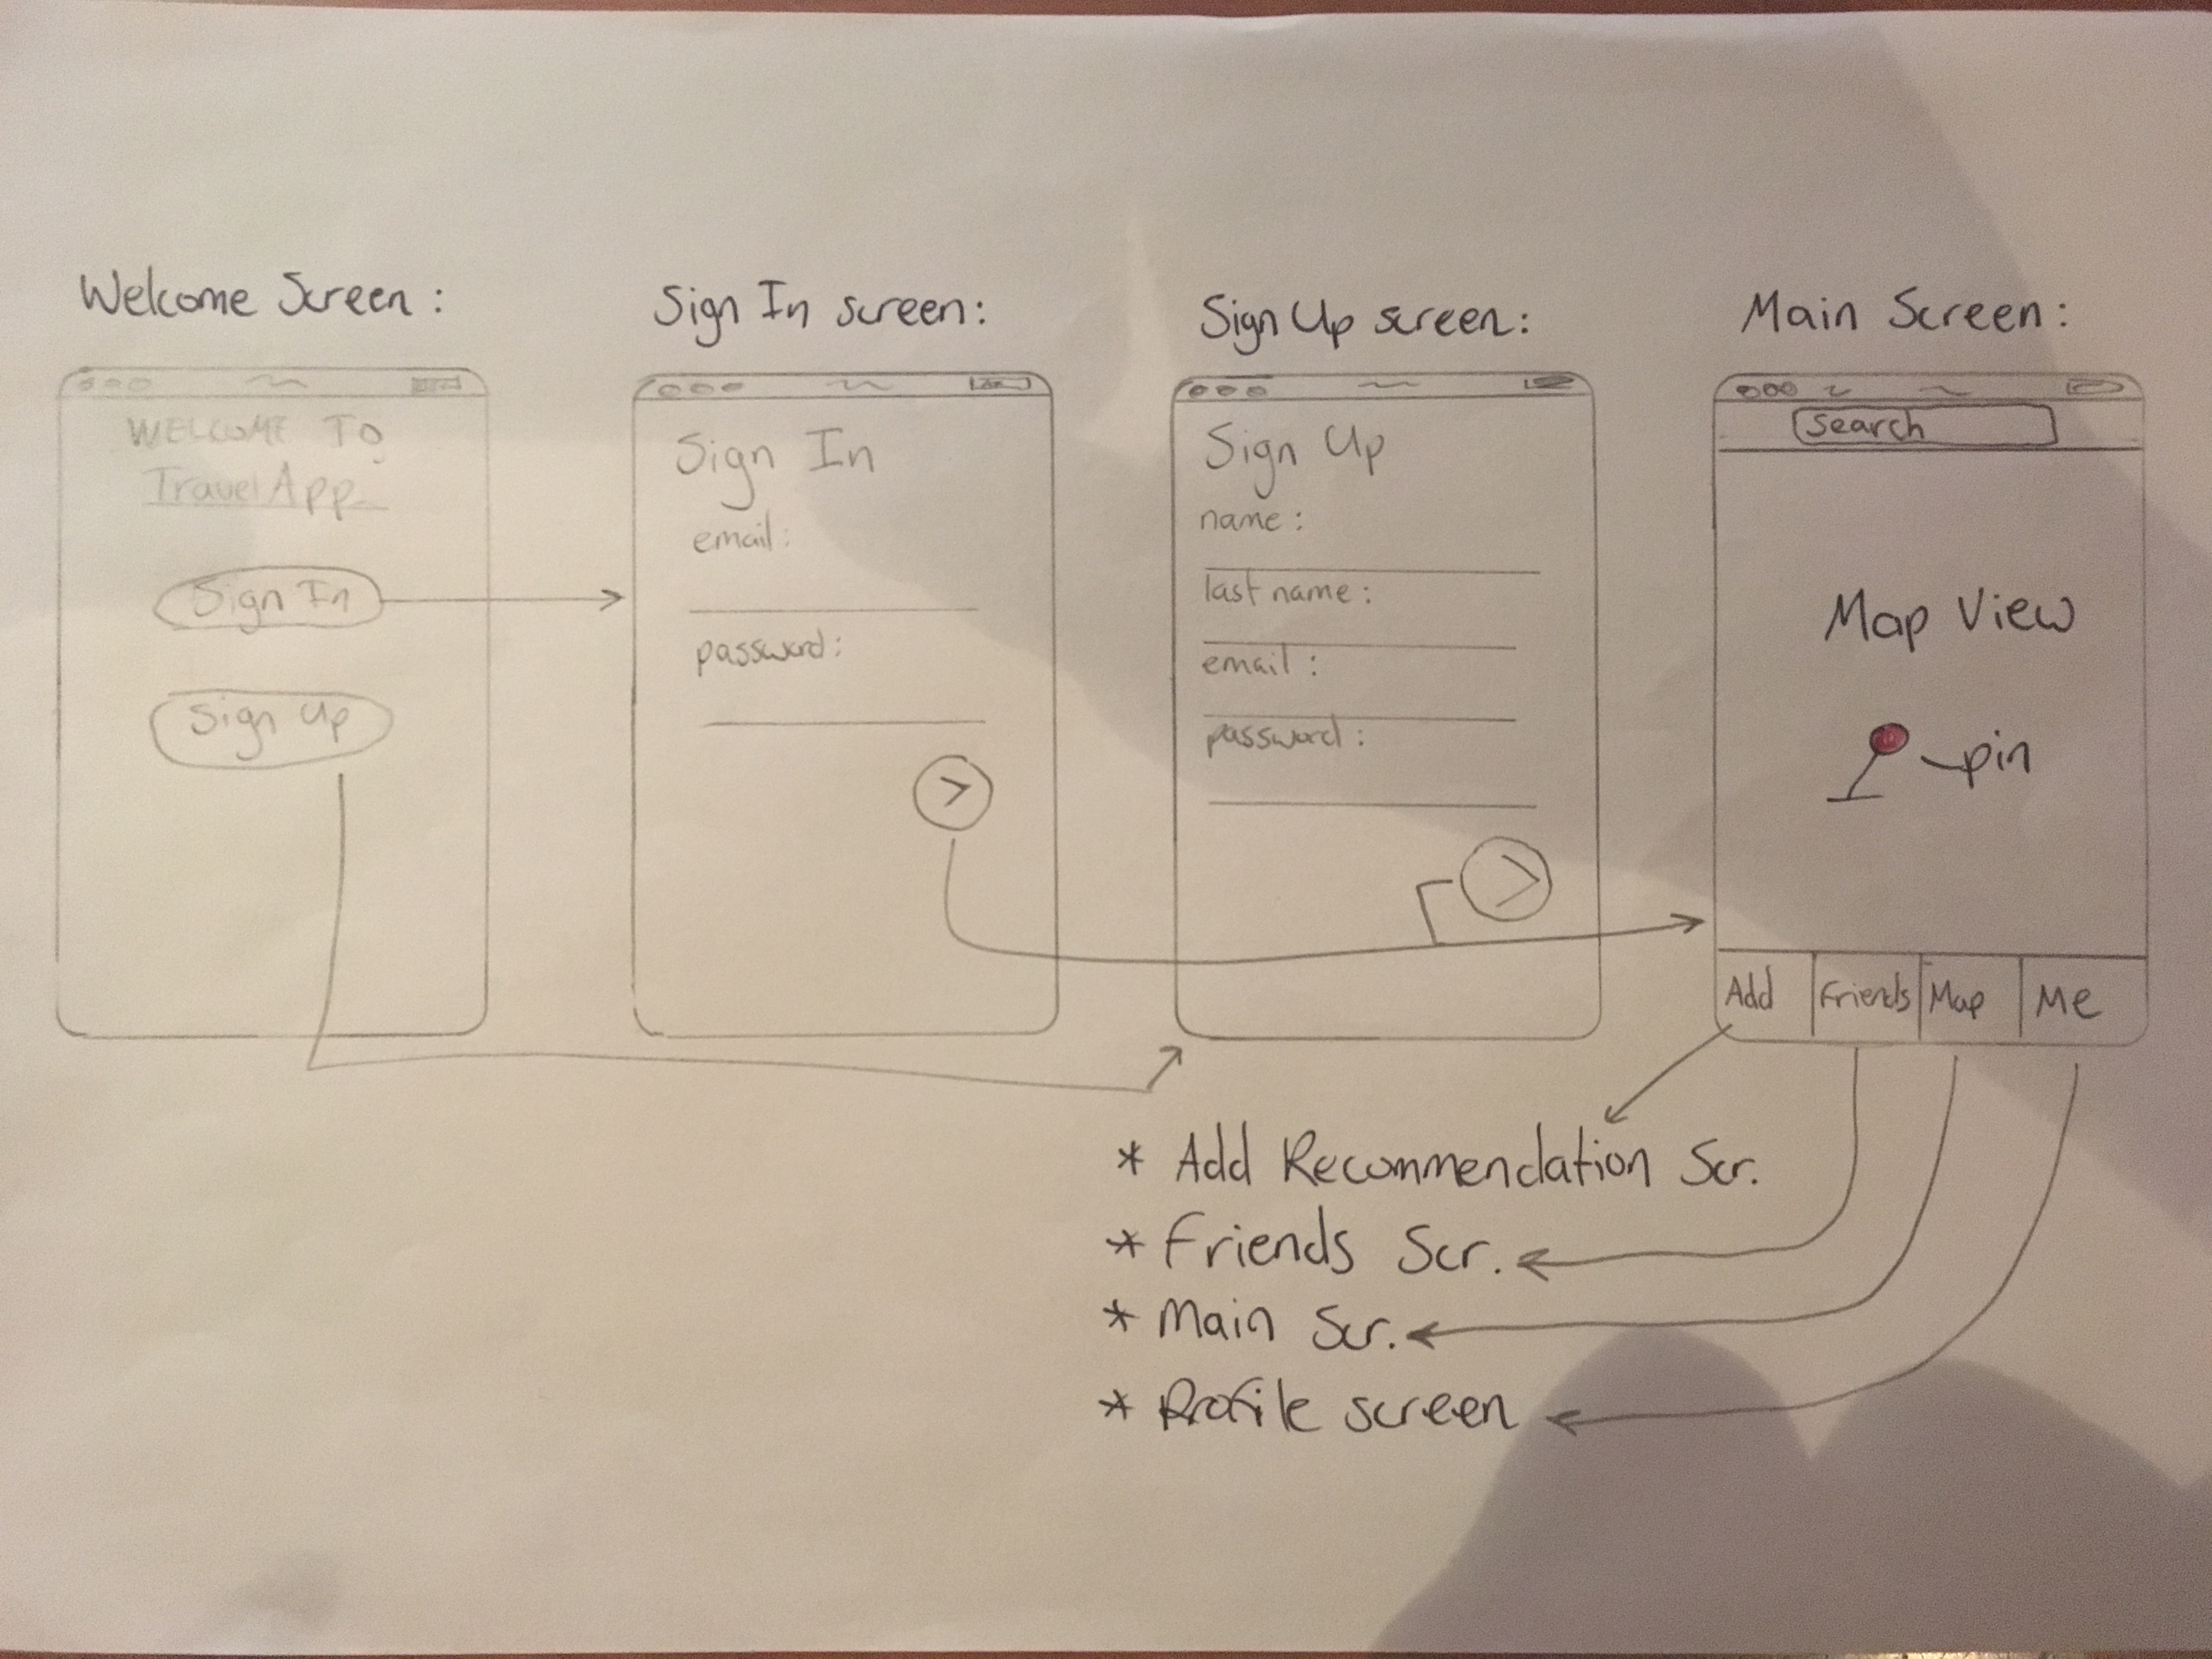 Welcome Screen:
WELCOME TO
TravelApp
Sign In
Sign Up
Sign In screen:
Sign In
email:
password:
>
Sign Up screen:
Sign Up
name:
last name:
email:
password:
>
Main Screen:
Search
Map View
pin
Add Friends Map Me
* Add Recommendation Scr.
* Friends Scr.
* Main Scr.
* Profile screen